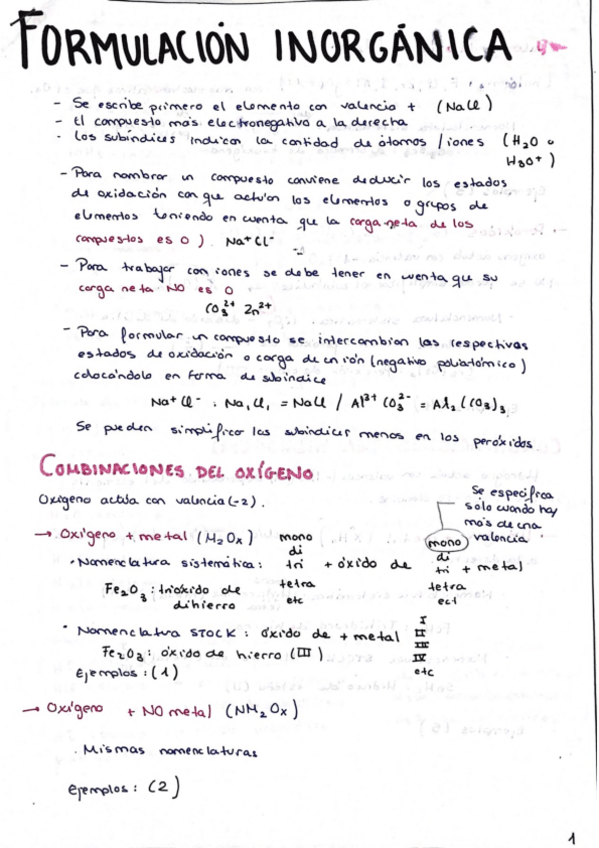 FORMULACIÓN INORGÁNICA
- Se escribe primero el elemento con valencia + (NaCl)
- El compuesto más electronegativo a la derecha
- Los subíndices indican la cantidad de átomos / iones (H₂O o
H₃O⁺)
- Para nombrar un compuesto conviene deducir los estados
de oxidación con que actúan los elementos o grupos de
elementos teniendo en cuenta que la carga neta de los
compuestos es 0 ) Na⁺Cl⁻
- Para trabajar con iones se debe tener en cuenta que su
carga neta NO es 0
CO₃²⁺ Zn²⁺
- Para formular un compuesto se intercambian las respectivas
estados de oxidación o carga de un ión (negativo poliatómico)
colocándolo en forma de subíndice
Na⁺Cl⁻ : Na₁Cl₁ = NaCl / Al³⁺ CO₃²⁻ = Al₂(CO₃)₃
Se pueden simplificar los subíndices menos en los peróxidos
COMBINACIONES DEL OXÍGENO
Oxígeno actúa con valencia (-2).
Se especifica
solo cuando hay
más de una
valencia
→ Oxígeno + metal (M₂Oₓ)
· Nomenclatura sistemática: mono di tri tetra etc + óxido de mono di tri tetra ect + metal
Fe₂O₃: trióxido de
dihierro
· Nomenclatura STOCK: óxido de + metal I II III IV etc
Fe₂O₃: óxido de hierro (III)
Ejemplos: (1)
→ Oxígeno + NO metal (NM₂Oₓ)
· Mismas nomenclaturas
ejemplos: (2)
1